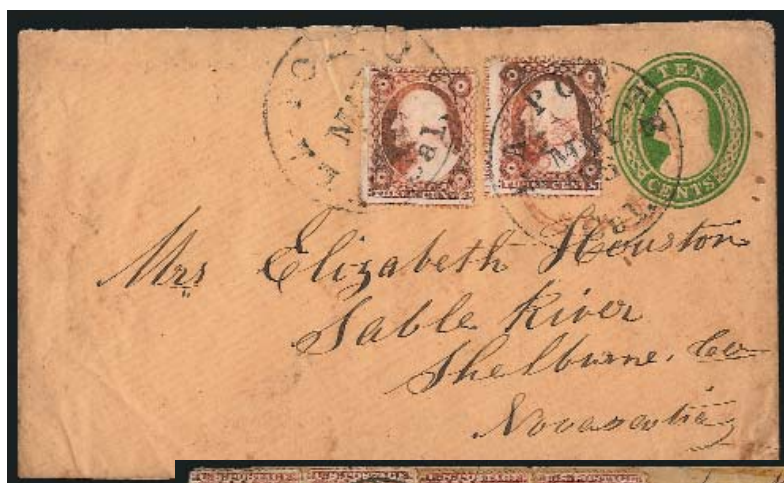 TEN
CENTS
MAY
Cal.
Mrs Elizabeth Houston
Sable River
Shelburne, Co
Novascotia